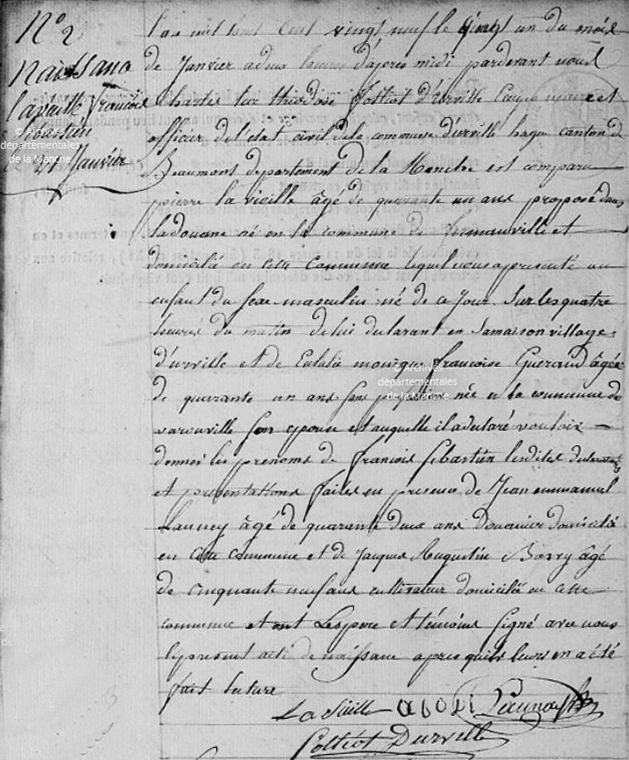 N° 2
naissance
lavieille francois
sebastien
21 Janvier
L'an mil huit cent vingt neuf le vingt un du mois
de Janvier a deux heures d'apres midi pardevant nous
Charles theodose Pottiot d'urville maire et
officier de l'etat civil de la commune d'urville hague canton de
Beaumont departement de la Manche est comparu
pierre la vieille âgé de quarante un ans proposé dans
la douane né en la commune de et
domicilié en cette commune lequel nous a presenté un
enfant du sexe masculin né de ce Jour Sur les quatre
heures du matin de lui declarant en Samaison village
d'urville et de Eulalie monique francoise Gueraud âgée
de quarante un ans née en la commune de
varouville son epouse et auquel il a declaré vouloir
donner les prenoms de francois sebastien lesdites declarations
et presentations faites en presence de Jean emmanuel
Launey âgé de quarante deux ans Douanier domicilié
en cette commune et de Jacques Augustin Borry âgé
de cinquante neuf ans cultivateur domicilié en cette
commune et ont Lespere et temoins Signé avec nous
le present acte de naissance apres quils leurs en a été
fait lecture
La Vieille Launey
Pottiot Durville
© Archives
départementales
de la Manche
© Archives
départementales
de la Manche